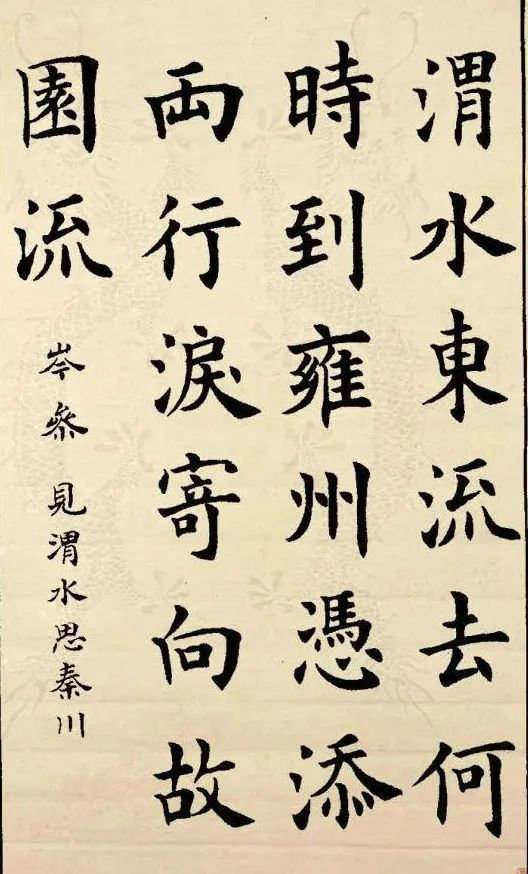 渭水東流去何
時到雍州憑添
兩行淚寄向故
園流
岑参 見渭水思秦川